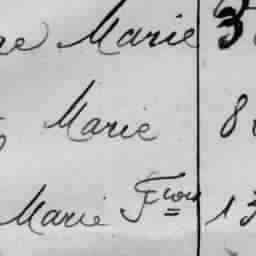 Marie 3
Marie 8
Marie Fcois 13